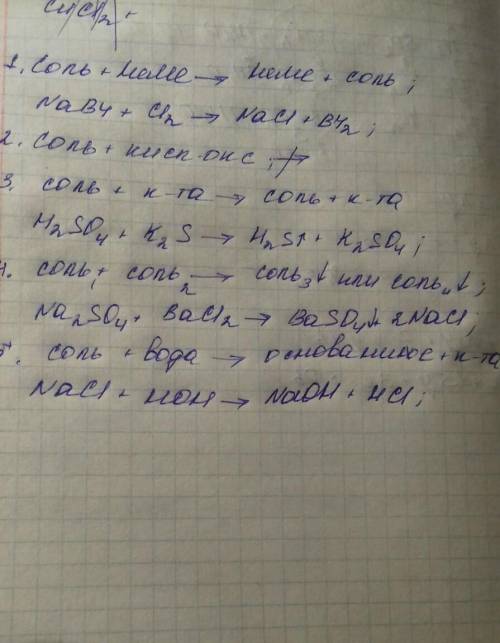 CuCl2
1. Соль + неме → неме + соль;
NaBr + Cl2 → NaCl + Br2;
2. Соль + кисл. окс. ↛
3. соль + к-та → соль + к-та
H2SO4 + K2S → H2S↑ + K2SO4;
4. соль1 + соль2 → соль3↓ или соль4↓;
Na2SO4 + BaCl2 → BaSO4↓ + 2NaCl;
5. соль + вода → основание + к-та
NaCl + HOH → NaOH + HCl;